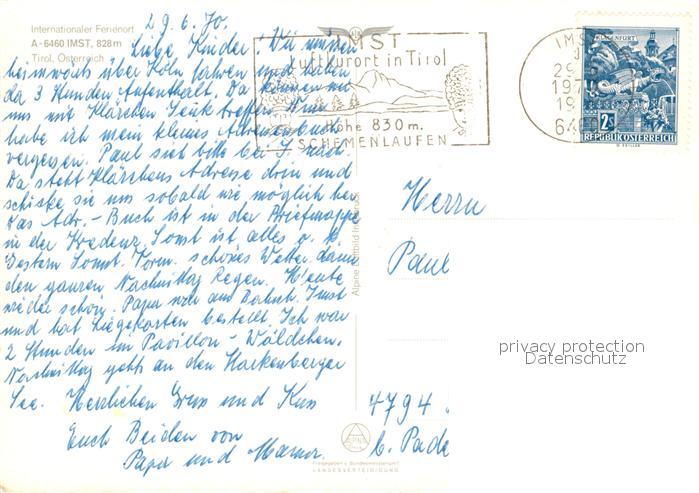 Internationaler Ferienort
A-6460 IMST, 828 m
Tirol, Österreich
29.6.70.
Liebe Kinder. Wir müssen
heimwärts über Köln fahren und haben
da 3 Stunden Aufenthalt. Da können wir
uns mit Klärchen Treff. Nun
habe ich mein kleines Adressenbuch
vergessen. Paul sieh bitte bei I nach.
Da steht Klärchens Adresse drin und
schicke sie uns sobald wie möglich her.
Das Adr.-Buch ist in der Briefmappe
in der Kredenz. Sonst ist alles o. k.
Gestern Sonnt. Vorm. schönes Wetter dann
den ganzen Nachmittag Regen. Heute
wieder schön. Papa war am Bahnh. Imst
und hat Liegekarten bestellt. Ich war
2 Stunden im Pavillon - Wäldchen.
Nachmittag gehts an den Starkenberger
See. Herzlichen Gruß und Kuss
Euch Beiden von
Papa und Mama.
IMST
Luftkurort in Tirol
Höhe 830 m.
SCHEMENLAUFEN
IMST
29
197
19
64
KLAGENFURT
2S
REPUBLIK ÖSTERREICH
Alpine Luftbild Innsbruck
Herrn
Paul
privacy protection
Datenschutz
4794
b. Pade
ALPINE
Freigegeben v. Bundesministerium f.
LANDESVERTEIDIGUNG